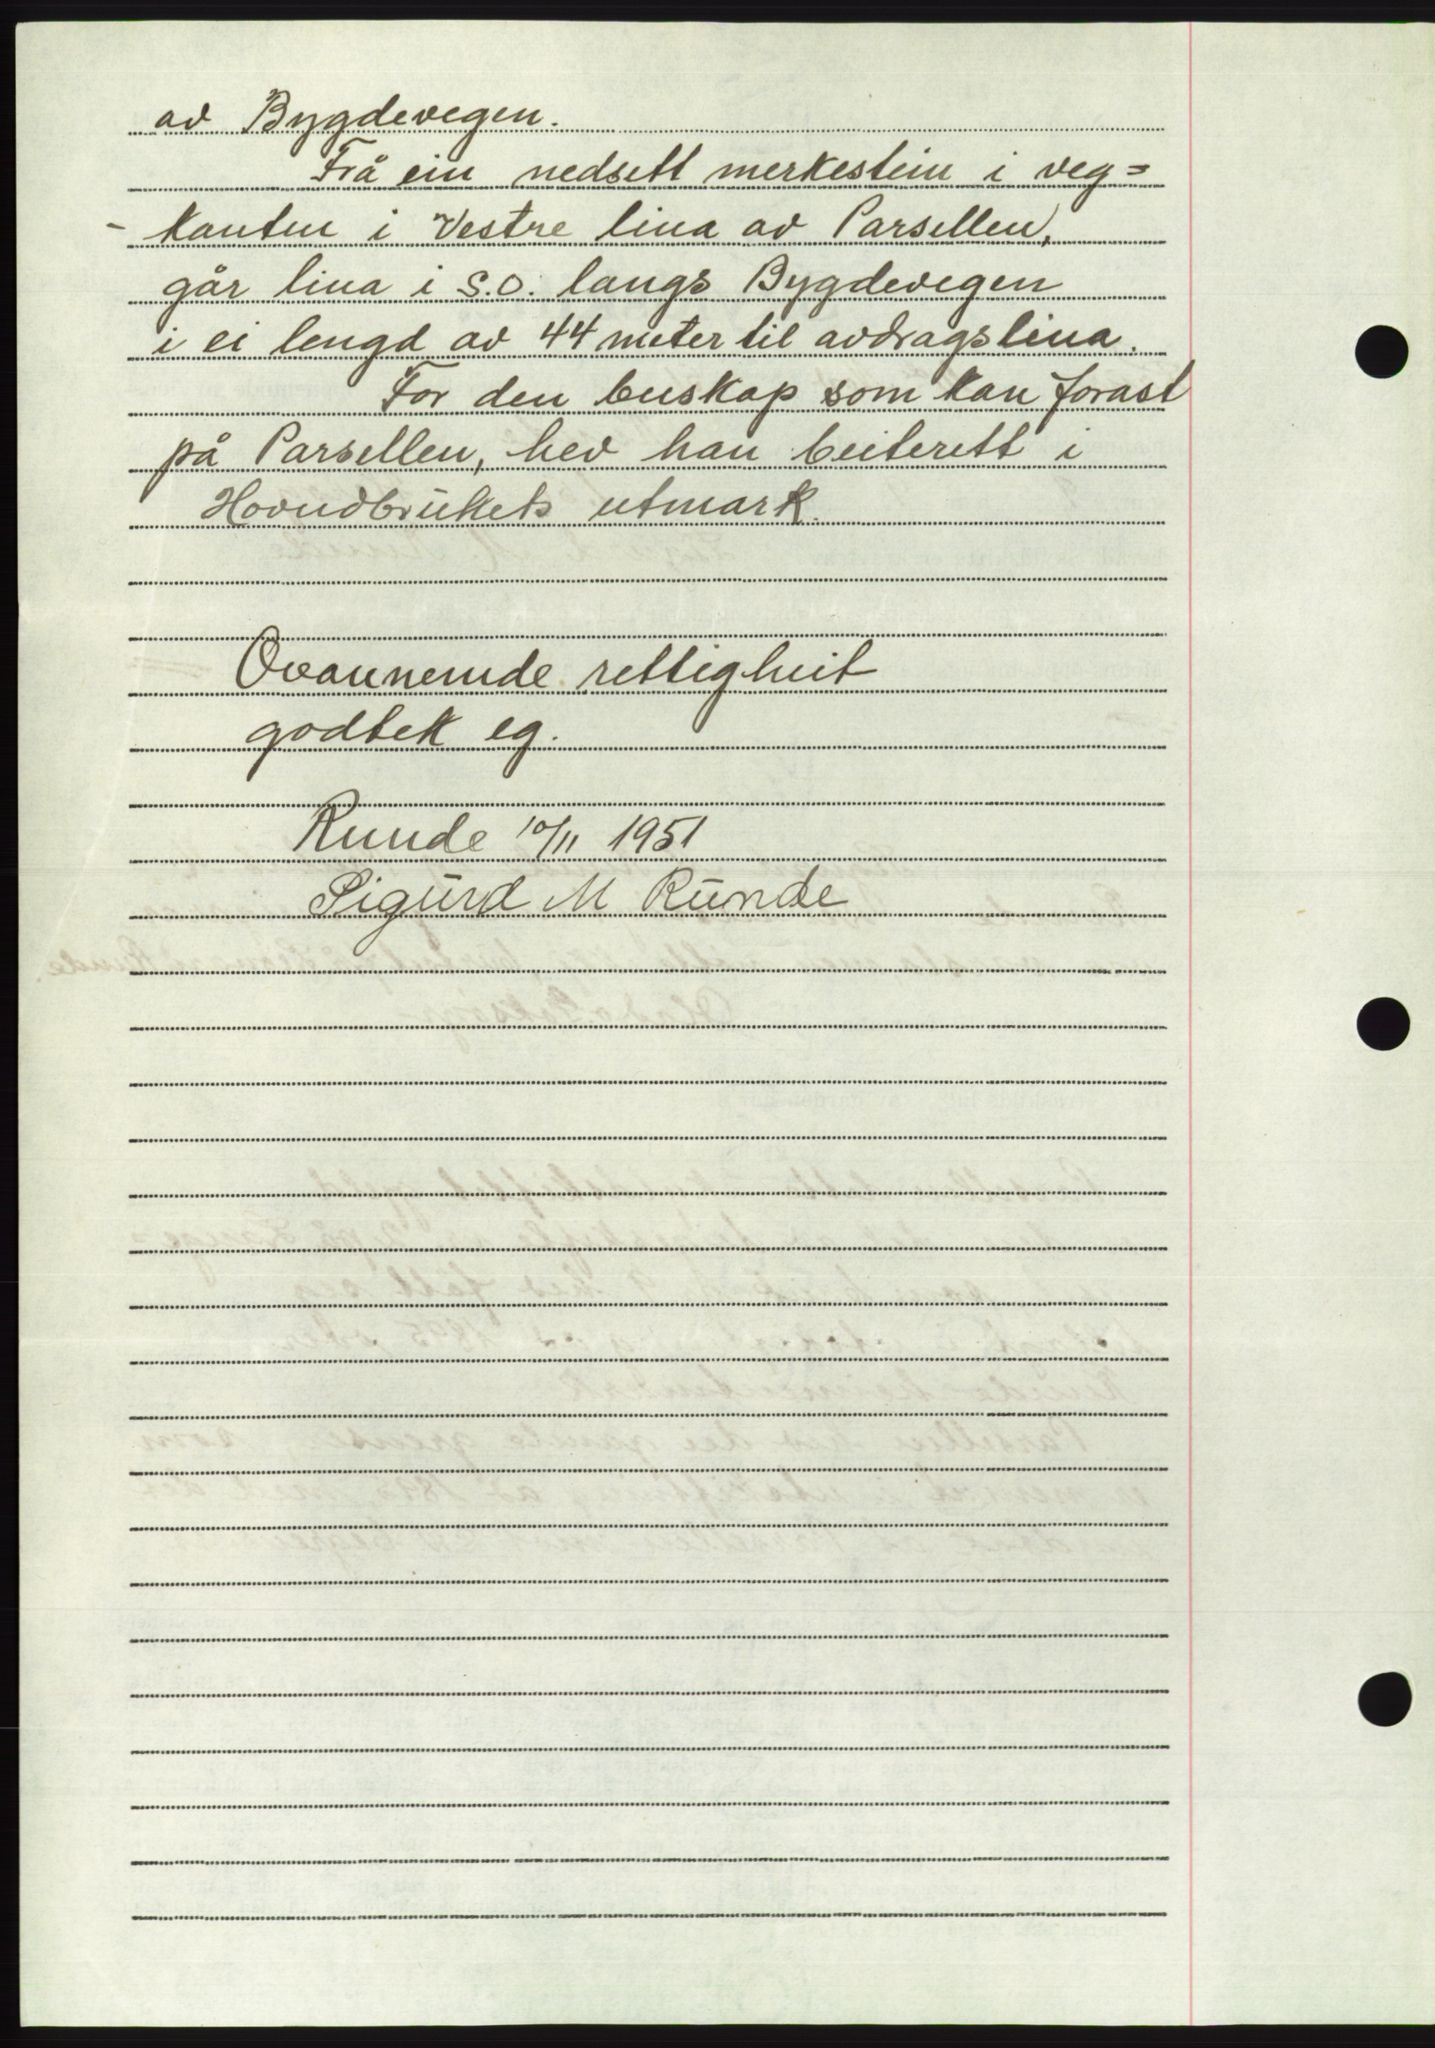 av Bygdevegen.
Frå ein nedsett merkestein i veg=
- kanten i Vestre lina av Parsellen,
går lina i S.O. langs Bygdevegen
i ei lengd av 44 meter til avdragslina.
For den buskap som kan forast
på Parsellen, hev han beiterett i
Hovudbrukets utmark.
Ovannemde rettigheit
godtek eg.
Runde 10/11 1951
Sigurd M Runde